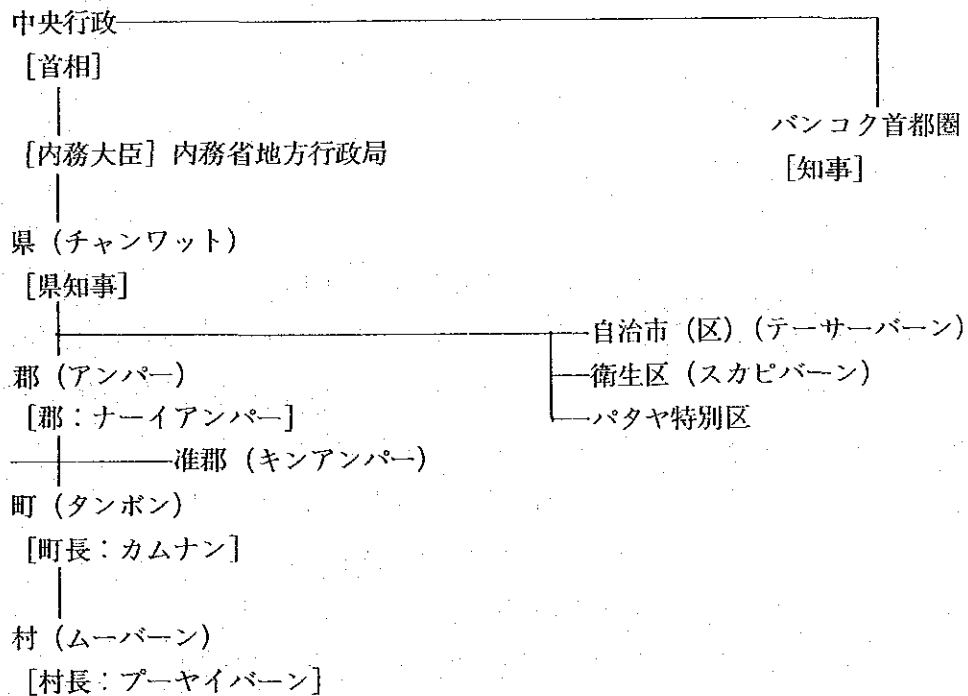 中央行政
[首相]
バンコク首都圏
[知事]
[内務大臣] 内務省地方行政局
県 (チャンワット)
[県知事]
自治市 (区) (テーサーバーン)
衛生区 (スカピバーン)
パタヤ特別区
郡 (アンパー)
[郡:ナーイアンパー]
准郡 (キンアンパー)
町 (タンボン)
[町長:カムナン]
村 (ムーバーン)
[村長:プーヤイバーン]